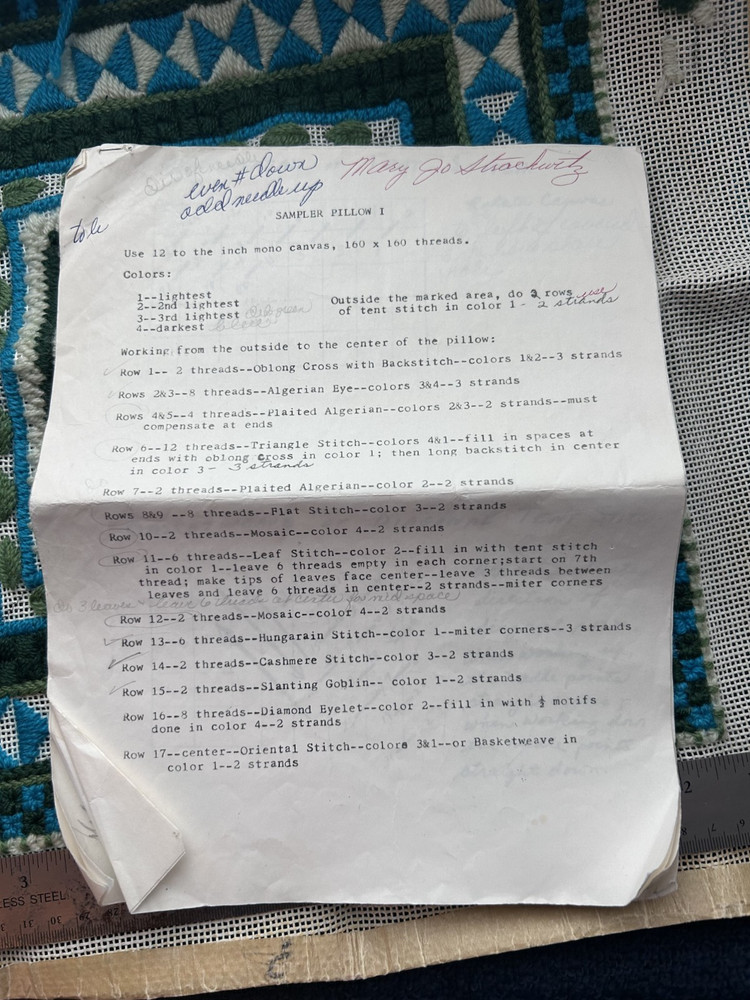 even # down
odd needle up
Mary Jo Strachwitz
SAMPLER PILLOW I
Use 12 to the inch mono canvas, 160 x 160 threads.
Colors:
1--lightest
2--2nd lightest
3--3rd lightest
4--darkest
Outside the marked area, do 2 rows use
of tent stitch in color 1 - 2 strands
Working from the outside to the center of the pillow:
Row 1-- 2 threads--Oblong Cross with Backstitch--colors 1&2--3 strands
Rows 2&3--8 threads--Algerian Eye--colors 3&4--3 strands
Rows 4&5--4 threads--Plaited Algerian--colors 2&3--2 strands--must
compensate at ends
Row 6--12 threads--Triangle Stitch--colors 4&1--fill in spaces at
ends with oblong cross in color 1; then long backstitch in center
in color 3 - 3 strands
Row 7--2 threads--Plaited Algerian--color 2--2 strands
Rows 8&9 --8 threads--Flat Stitch--color 3--2 strands
Row 10--2 threads--Mosaic--color 4--2 strands
Row 11--6 threads--Leaf Stitch--color 2--fill in with tent stitch
in color 1--leave 6 threads empty in each corner;start on 7th
thread; make tips of leaves face center--leave 3 threads between
leaves and leave 6 threads in center--2 strands--miter corners
3 leaves leave 6 threads at center for mid space
Row 12--2 threads--Mosaic--color 4--2 strands
Row 13--6 threads--Hungarain Stitch--color 1--miter corners--3 strands
Row 14--2 threads--Cashmere Stitch--color 3--2 strands
Row 15--2 threads--Slanting Goblin-- color 1--2 strands
Row 16--8 threads--Diamond Eyelet--color 2--fill in with ½ motifs
done in color 4--2 strands
Row 17--center--Oriental Stitch--colors 3&1--or Basketweave in
color 1--2 strands
2
3
LESS STEEL